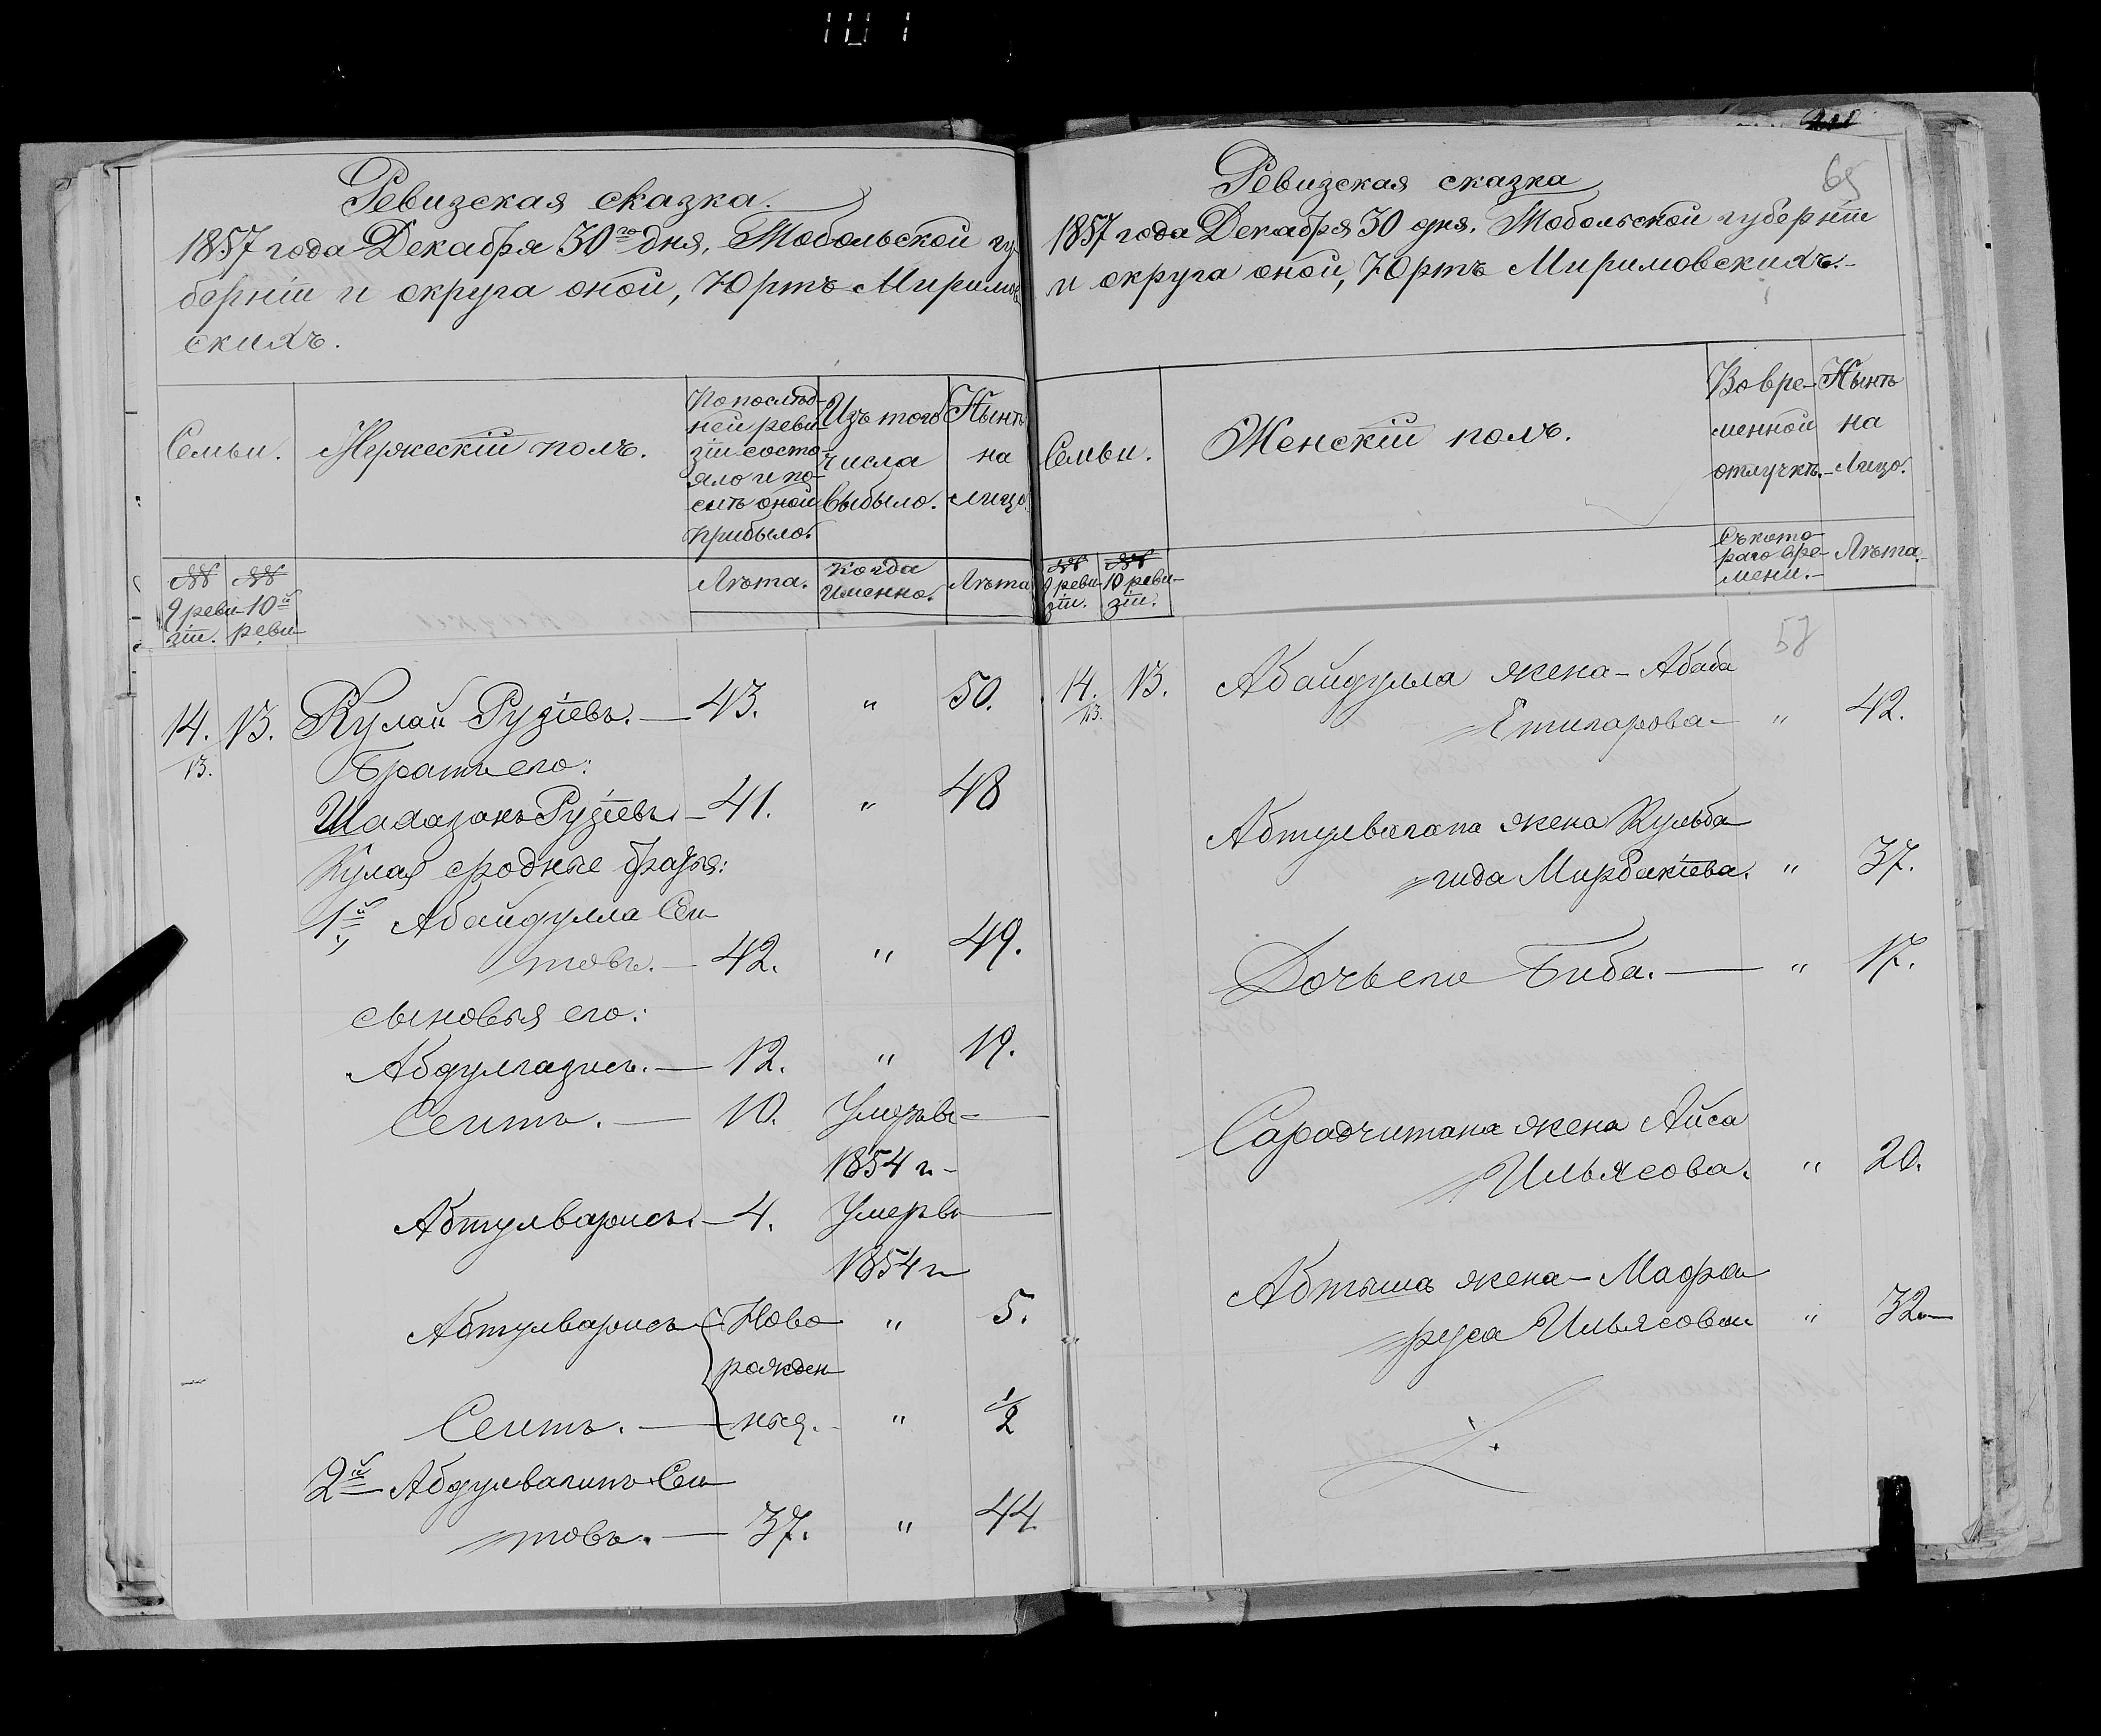 Ревизская сказка.
1857 года Декабря 30го дня, Тобольской гу-
берніи и округа оной, Юртъ Миримов
скихъ.
Семьи.
Мужескій полъ.
По послѣд-
ней реви
зіи состо-
яло и по-
слѣ оной
прибыло.
Изъ того
числа
выбыло.
Нынѣ
на
лицо.
№№
9 реви-
зіи.
№№
10й
реви-
Лѣта.
Когда
Именно.
Лѣта
14. 13. Кулай Рузіевъ. — 43. " 50.
13.
Братъ его:
Шадазанъ Рузіевъ. — 41. " 48
Кулая сродные братья:
1й Абайдулла Сеи
товъ. — 42. " 49.
сыновья его:
Абдулгазисъ. — 12. " 19.
Сеитъ. — 10. Умеръ в
1854 г.
Абтулварисъ. — 4. Умеръ в
1854 г
Абтулварисъ Ново " 5.
рожден
Сеитъ. — ныя. " 1/2
2й Абдулвагитъ Сеи
товъ. — 37. " 44
65
Ревизская сказка
1857 года Декабря 30 дня. Тобольской губерніи
и округа оной, Юртъ Миримовскихъ.
Семьи.
Женскій полъ.
Во вре-
менной
отлучкѣ.
Нынѣ
на
Лицо.
№№
9 реви-
зіи.
№№
10 реви-
зіи.
Съ кото-
раго вре-
мени.
Лѣта.
58
14. 13. Абайдулла жена - Абаба
13.
Етигарова " 42.
Абтулвагапа жена Кульба
гида Мирбакіева. " 37.
Дочь его Биба. — " 17.
Сарадчитана жена Айса
Ильясова. " 20.
Абтыша жена - Мафра
руса Ильясова " 32